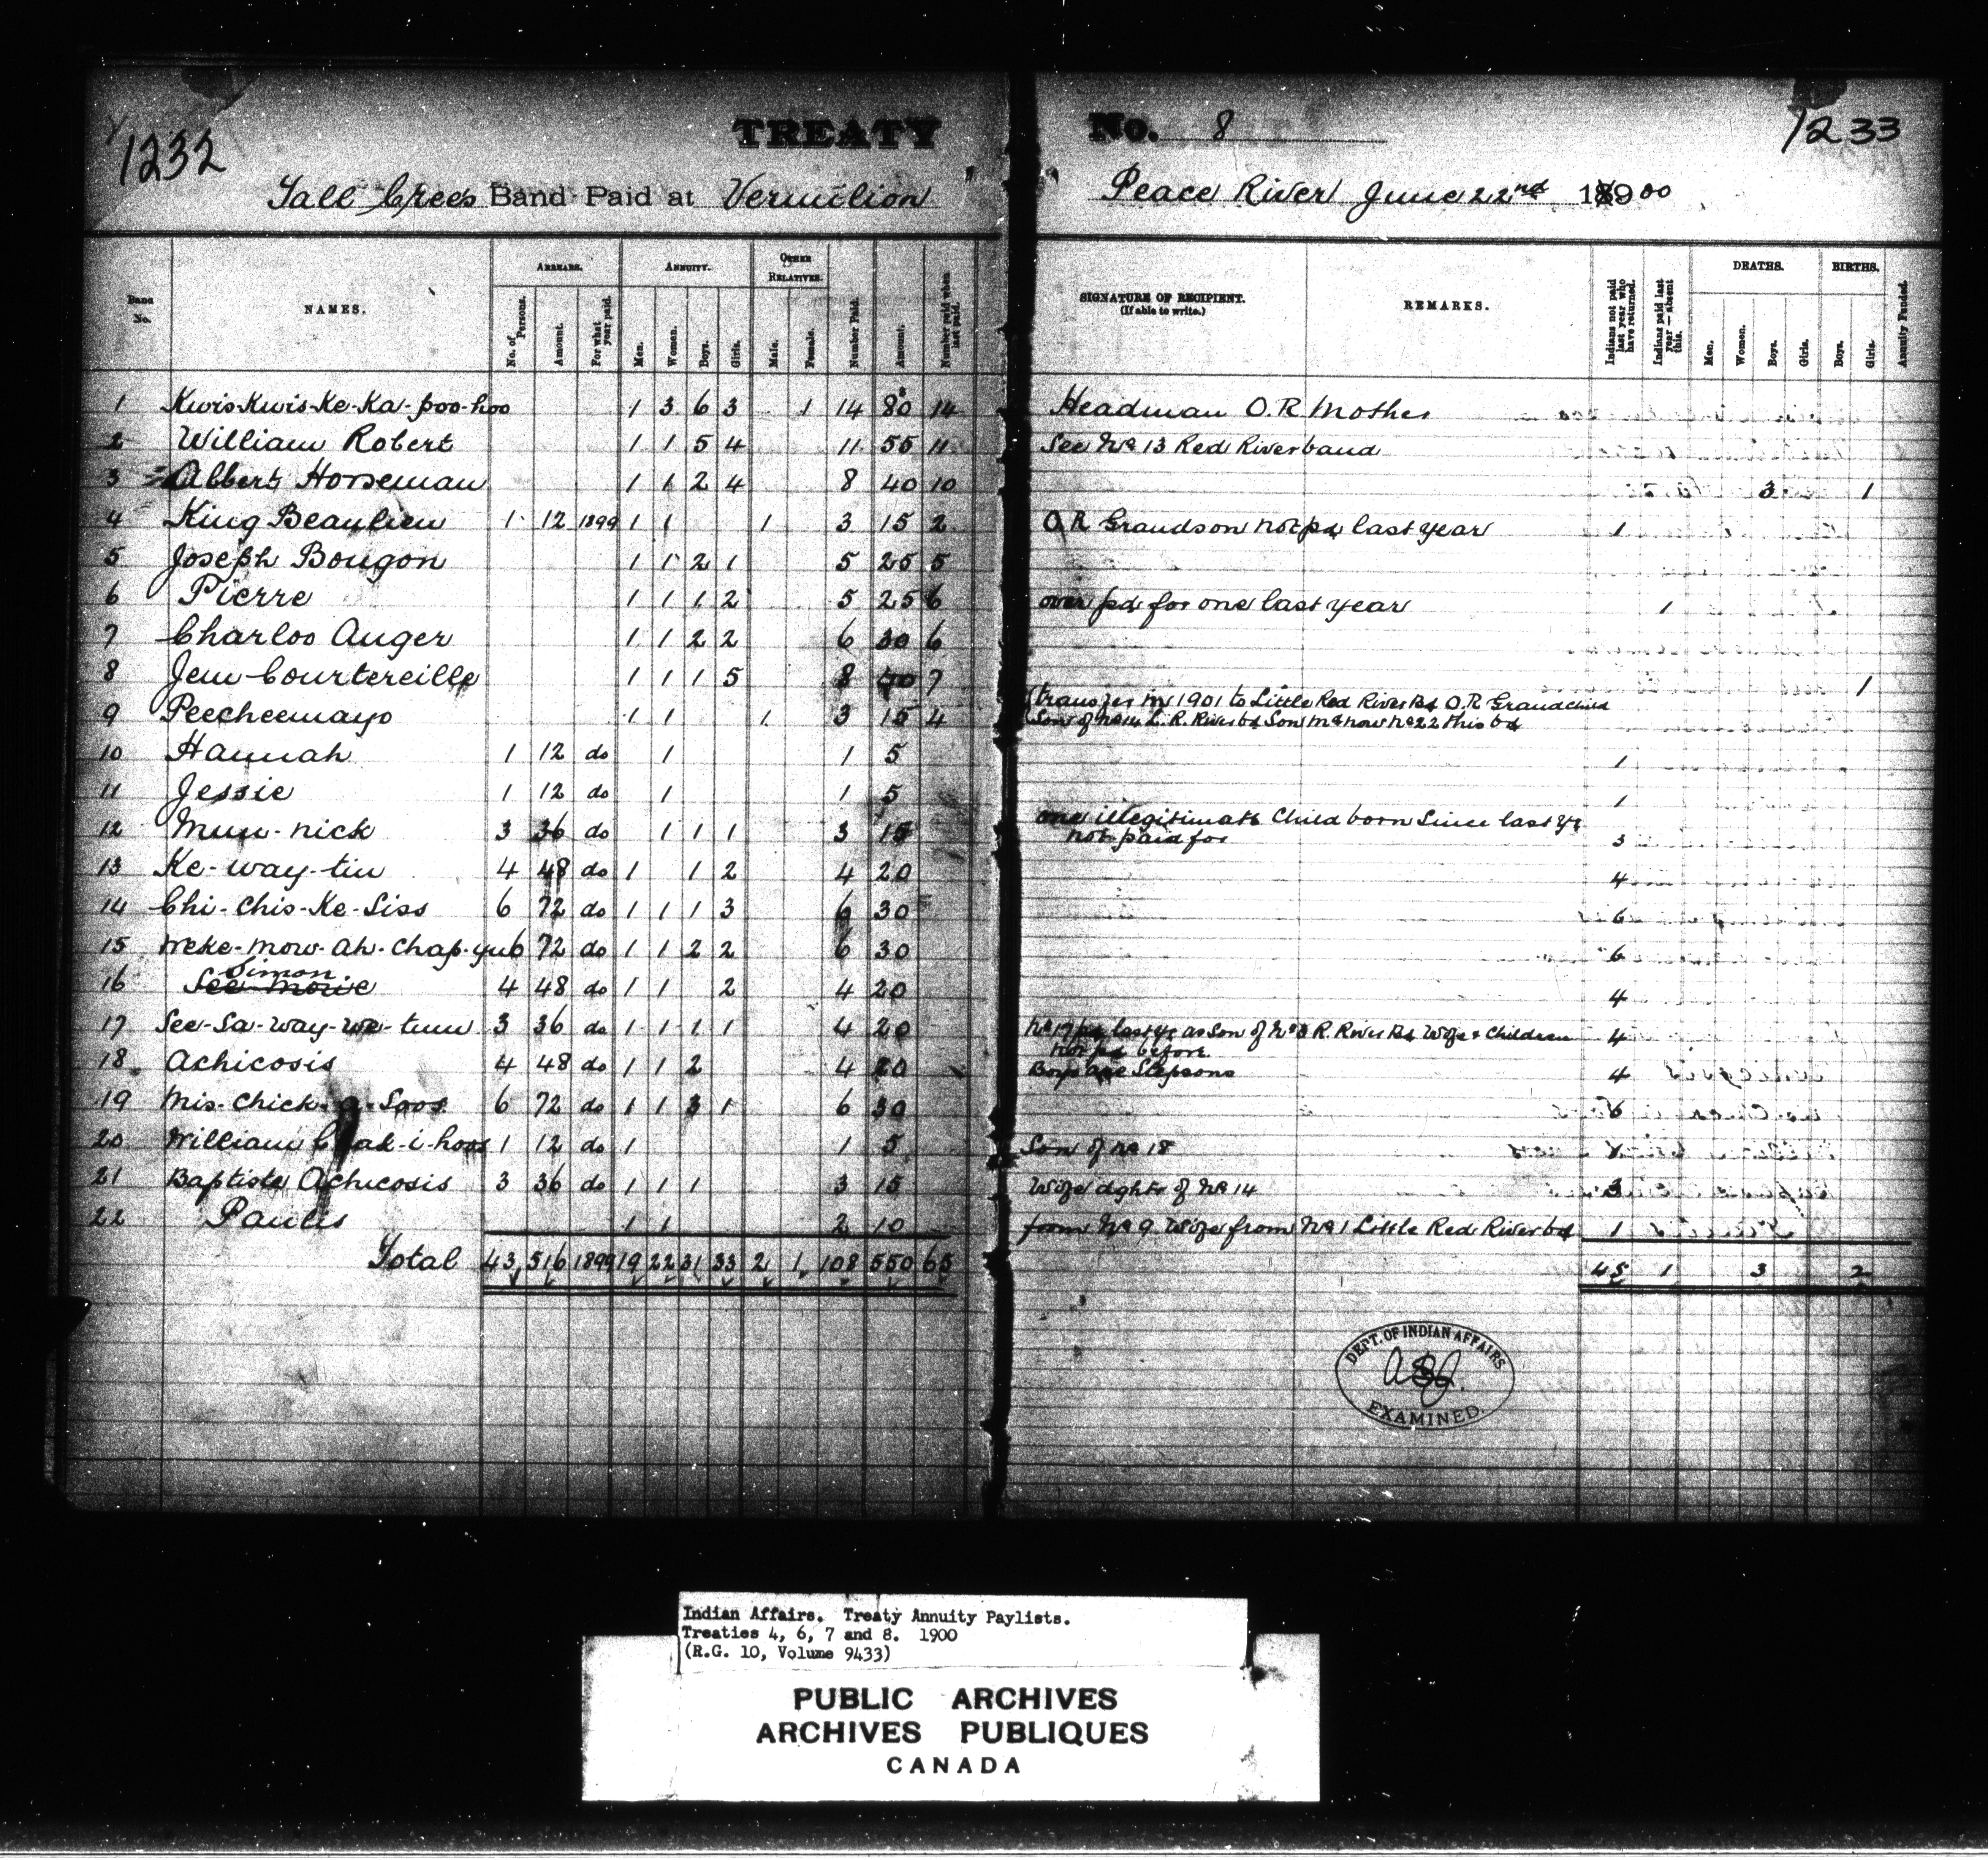 1232 TREATY No. 8 1233
Tall Crees Band Paid at Vermilion Peace River June 22nd 1900
Band No. NAMES. ARREARS. ANNUITY. OTHER RELATIVES. SIGNATURE OF RECIPIENT. (If able to write.) REMARKS. DEATHS. BIRTHS.
No. of Persons. Amount. For what year paid. Men. Women. Boys. Girls. Male. Female. Number Paid. Amount. Number paid when last paid. Indians not paid last year who have returned. Indians paid last year — absent this. Men. Women. Boys. Girls. Boys. Girls. Annuity Funded.
1 Kwis-Kwis-Ke-Ka-poo-hoo 1 3 6 3 1 14 80 14 Headman O.R Mother
2 William Robert 1 1 5 4 11 55 11 See No 13 Red River band
3 Albert Horseman 1 1 2 4 8 40 10 3 1
4 King Beaulieu 1 12 1899 1 1 1 3 15 2 O.R Grandson not pd last year 1
5 Joseph Bougon 1 1 2 1 5 25 5
6 Pierre 1 1 1 2 5 25 6 over pd for one last year 1
7 Charloo Auger 1 1 2 2 6 30 6
8 Jem Courtereille 1 1 1 5 8 40 7 1
9 Peecheemayo 1 1 1 3 15 4 (transfer in 1901 to Little Red River Bd O.R Grandchild
(Son of No 14 L. R. River bd Son Md now No 22 this bd
10 Hannah 1 12 do 1 1 5 1
11 Jessie 1 12 do 1 1 5 1
12 Mun-nick 3 36 do 1 1 1 3 15 one illegitimate Child born Since last yr 3
not paid for
13 Ke-way-tin 4 48 do 1 1 2 4 20 4
14 Chi-chis-Ke-Siss 6 72 do 1 1 1 3 6 30 6
15 Weke-mow-ah-chap-yu 6 72 do 1 1 2 2 6 30 6
Simon
16 See-mowe 4 48 do 1 1 2 4 20 4
17 See-Sa-way-we-tum 3 36 do 1 1 1 1 4 20 No 17 pd last yr as Son of No 3 R. River Bd Wife & Children 4
not pd before
18 Achicosis 4 48 do 1 1 2 4 20 Boys are Stepsons 4
19 Mis-chick-a-Soos 6 72 do 1 1 3 1 6 30 6
20 William 1 12 do 1 1 5 Son of No 18
21 Baptiste Achicosis 3 36 do 1 1 1 3 15 Wife dghtr of No 14 3
22 Paulis 1 1 2 10 from No 9 Wife from No 1 Little Red River bd 1
Total 43 516 1899 19 22 31 33 2 1 108 550 65 45 1 3 2
DEPT. OF INDIAN AFFAIRS
EXAMINED.
Indian Affairs. Treaty Annuity Paylists.
Treaties 4, 6, 7 and 8. 1900
(R.G. 10, Volume 9433)
PUBLIC ARCHIVES
ARCHIVES PUBLIQUES
CANADA